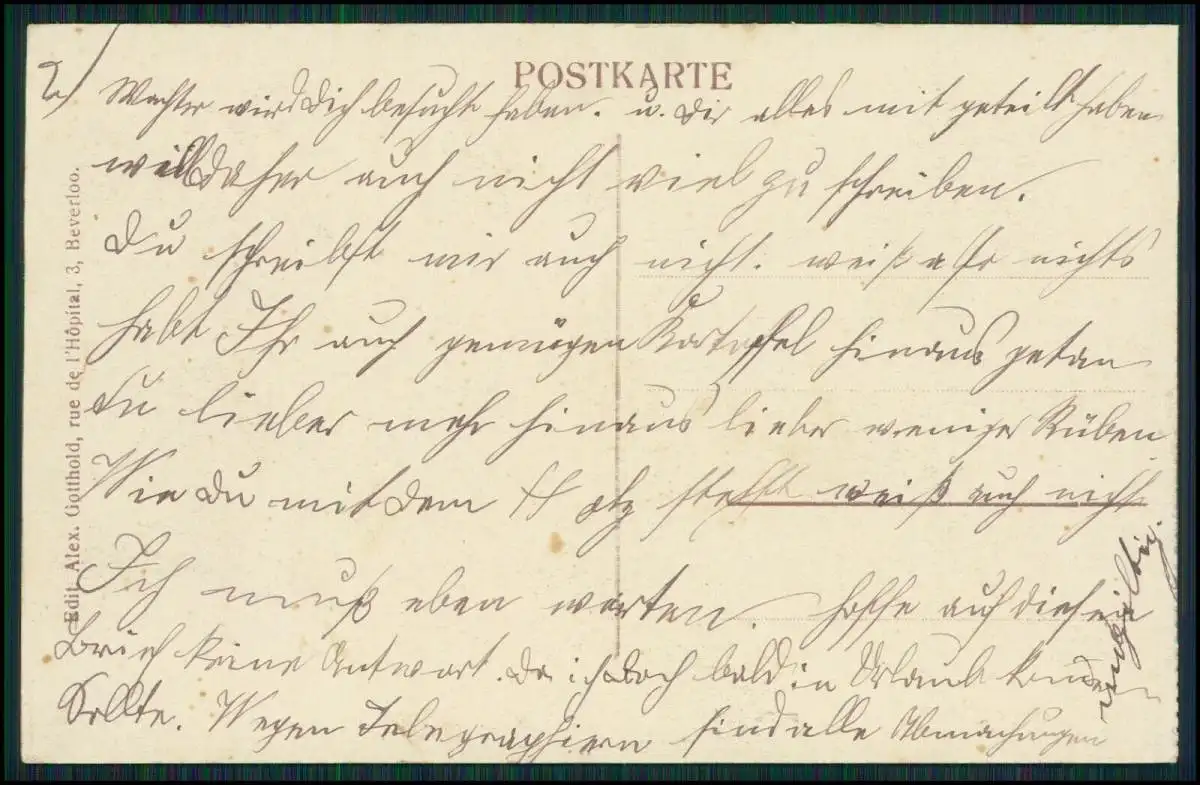 POSTKARTE
2.) Wachter wird Dich besucht haben. u. Dir alles mit geteilt haben
will daher auch nicht viel zu schreiben.
Du schreibst mir auch nicht. weiß also nichts
habt Ihr auch genügen Kartoffel hinaus getan
Du lieber mehr hinaus lieber weniger Rüben
Wie Du mit dem Holz stehst weiß auch nicht
Ich muß eben warten. hoffe auf diesen
Brief keine Antwort. Da ich doch bald in Urlaub kommen
Sollte. Wegen Telegraphiern sind alle Abmachungen
ungültig.
Edit. Alex. Gotthold, rue de l'Hôpital, 3, Beverloo.